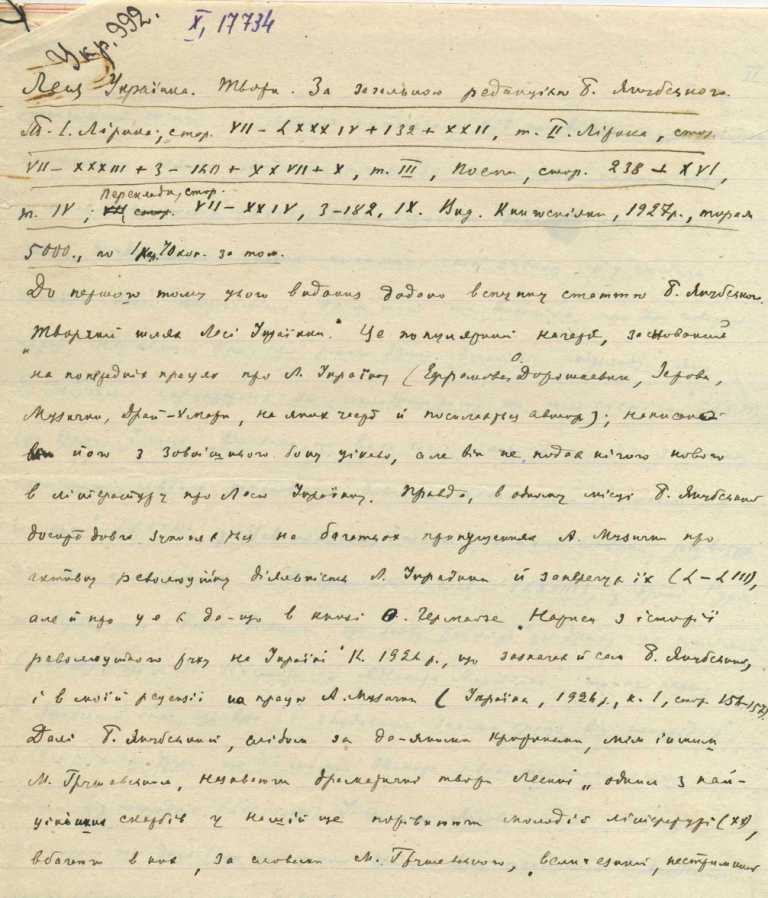 Укр. 992.
X, 17734
Леся Українка. Твори. За загальною редакцією Б. Якубського.
Т. I. Лірика, стор. VII – LXXXIV + 132 + XXII, т. II. Лірика, стор.
VII – XXXIII + 3 – 180 + XXVII + X, т. III, Поеми, стор. 238 + XVI,
Переклади, стор.
т. IV; VII – XXIV, 3 – 182, IX. Вид. Книгоспілка, 1927 р., тираж
5000., по 1 70 коп. за том.
До першого тому цього видання додано вступну статтю Б. Якубського.
„Творчий шлях Лесі Українки." Це популярний нарис, заснований
на попередніх працях про Л. Українку (Єфремова, Дорошкевича, Зерова,
Музички, Драй-Хмари, на яких часто й посилається автор); написано
його з зовнішнього боку цікаво, але він не подає нічого нового
в літературу про Лесю Українку. Правда, в одному місці Б. Якубський
досить довго зупиняється на багатьох припущеннях А. Музички про
активну революційну діяльність Л. Українки й заперечує їх (L – LIII),
але й про це є де-що в книзі О. Гермайзе „Нариси з історії
революційного руху на Україні" К. 1926 р., що зазначає й сам Б. Якубський,
і в моїй рецензії на працю А. Музички (Україна, 1926 р., к. 1, стор. 156-157).
Далі Б. Якубський, слідом за де-якими критиками, між іншим
М. Грушевським, називаючи драматичні твори Лесині „одним з най-
цінніших скарбів у нашій ще порівнюючи молодій літературі (XX),
вбачає в них, за словами М. Грушевського, „величезний, нестримний